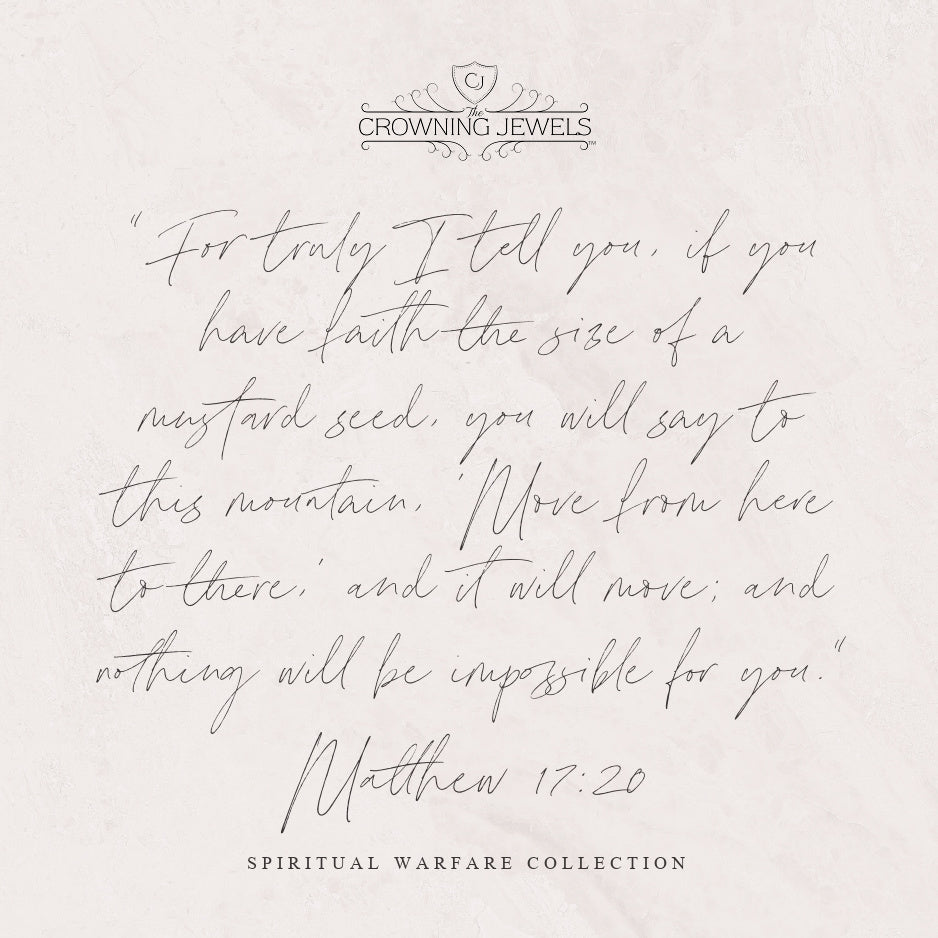 CJ
The
CROWNING JEWELS™
"For truly I tell you, if you
have faith the size of a
mustard seed, you will say to
this mountain, 'Move from here
to there,' and it will move; and
nothing will be impossible for you."
Matthew 17:20
SPIRITUAL WARFARE COLLECTION